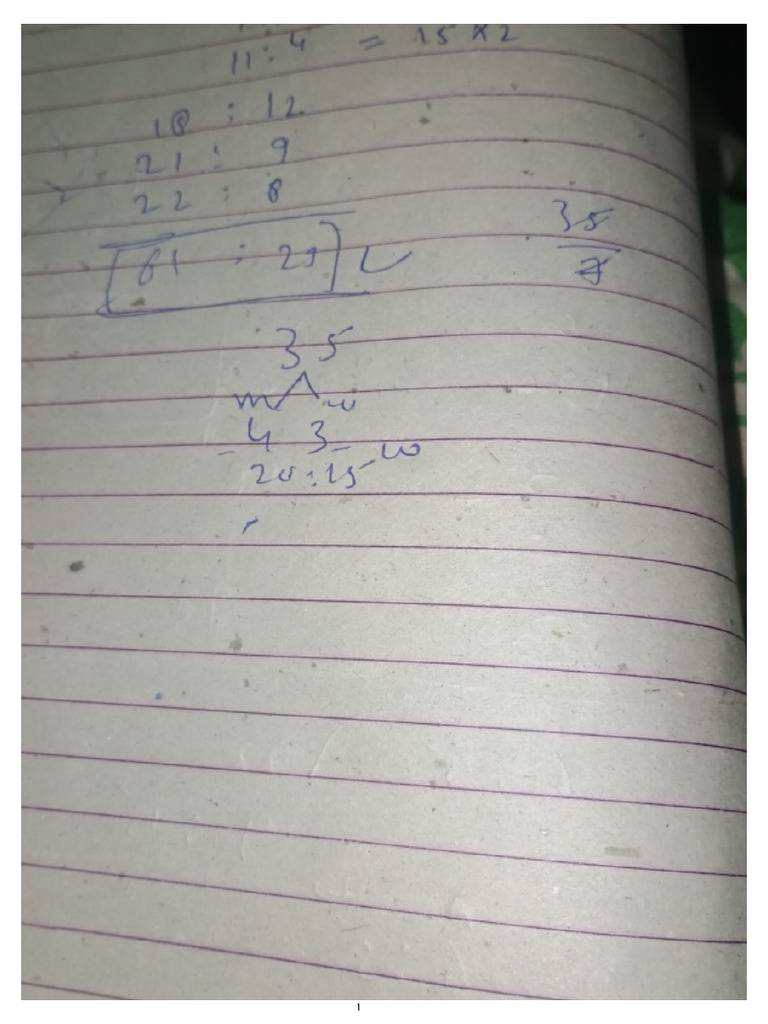 11 : 4 = 15 × 2
18 : 12
21 : 9
22 : 8
61 : 29
35
35
m w
4 3
20 : 15 - w
1